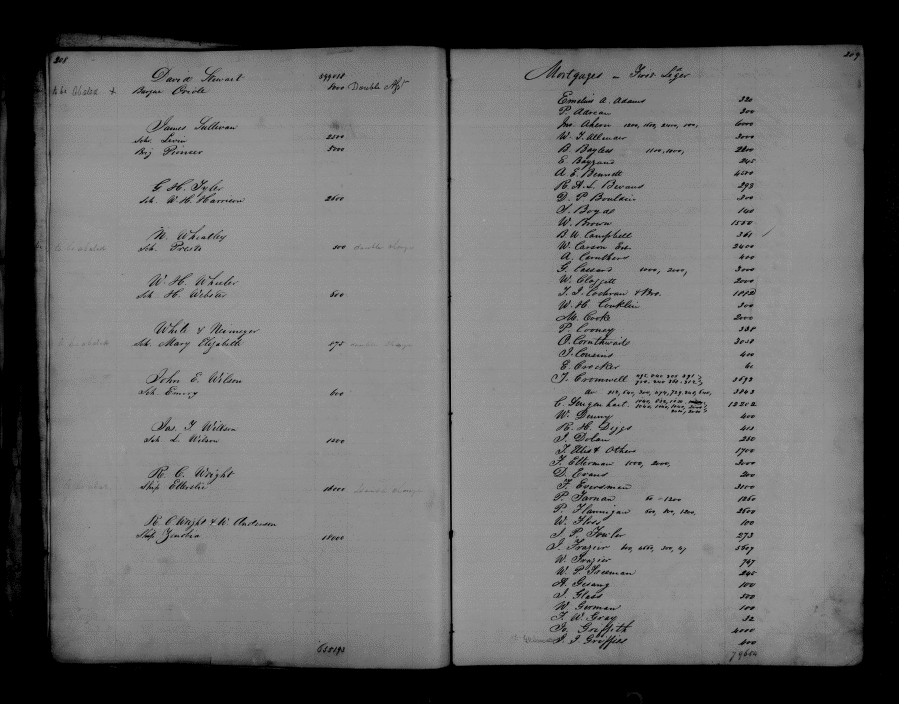 208
David Stewart
Barque Oriole 8000 Double
James Sullivan
Sch. Levin 2500
Brig Pioneer 8000
G. H. Tyler
Sch W. H. Harrison 2600
N. Wheatley
Sch. Presto 300 double charge
W. H. Wheeler
Sch H. Webster 600
White &
Sch Mary Elizabeth 875
John E. Wilson
Sch. Emory 600
Jas. T. Wilson
Sch L. Wilson 1200
R. C. Wright
Ship 18000 double charge
R. C Wright & W. Anderson
Ship Zenobia 18000
209
Mortgages
Emelius A. Adams 320
P. Adrean 300
Jno. Ahern 6000
W. J. Allender 3000
B. Bayless 1100, 1100, 2200
E. Bayzand 245
A. E. Bennett 4500
R. A. L. Bevans 293
D. P. Boulain 300
J. Boyd 140
W. Brown 1550
B. W Campbell 361
W. Carson 2400
A. Caruthers 400
G. Cassard 1000, 2000, 3000
W. Claggett 2000
J. I. Cochran & Bro.
W. H. Conklin 300
M. Cooke 2000
P. Cooney 338
O. Cornthwait 3058
J. Cousins 400
E. Crocker 60
J. Cromwell 3693
do 3843
12202
W. Denny 400
R. H. Diggs
J. Dolan 250
J. Ellis & Others 1700
F. Etterman 1000, 2000, 3000
D. Evans 200
F. Eversman 3100
P. Farnan 60 - 1200 1260
P. Flannigan 600, 800, 1200, 2600
W. Floss 100
J. P. Fowler 273
J. Frazier 5607
W Frazier 747
W. P. Freeman 245
A. Gesang 100
J. Glass 500
W. German 100
F. W. Gray 32
Griffith 4000
J. J. Griffiss 600